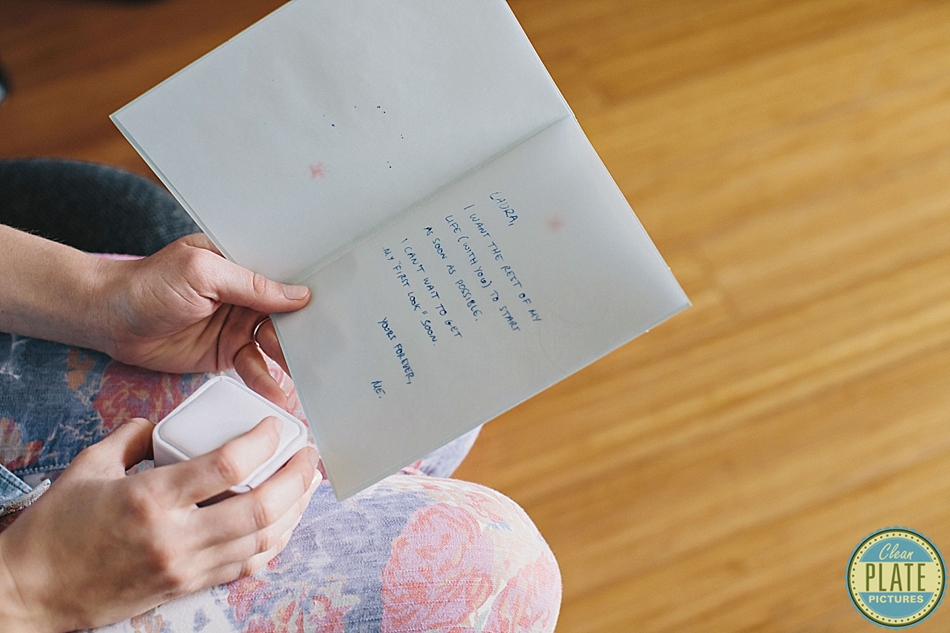 LAURA,
I WANT THE REST OF MY
LIFE (WITH YOU) TO START
AS SOON AS POSSIBLE.
I CAN'T WAIT TO GET
MY "FIRST LOOK" SOON.
YOURS FOREVER,
ME.
Clean
PLATE
PICTURES